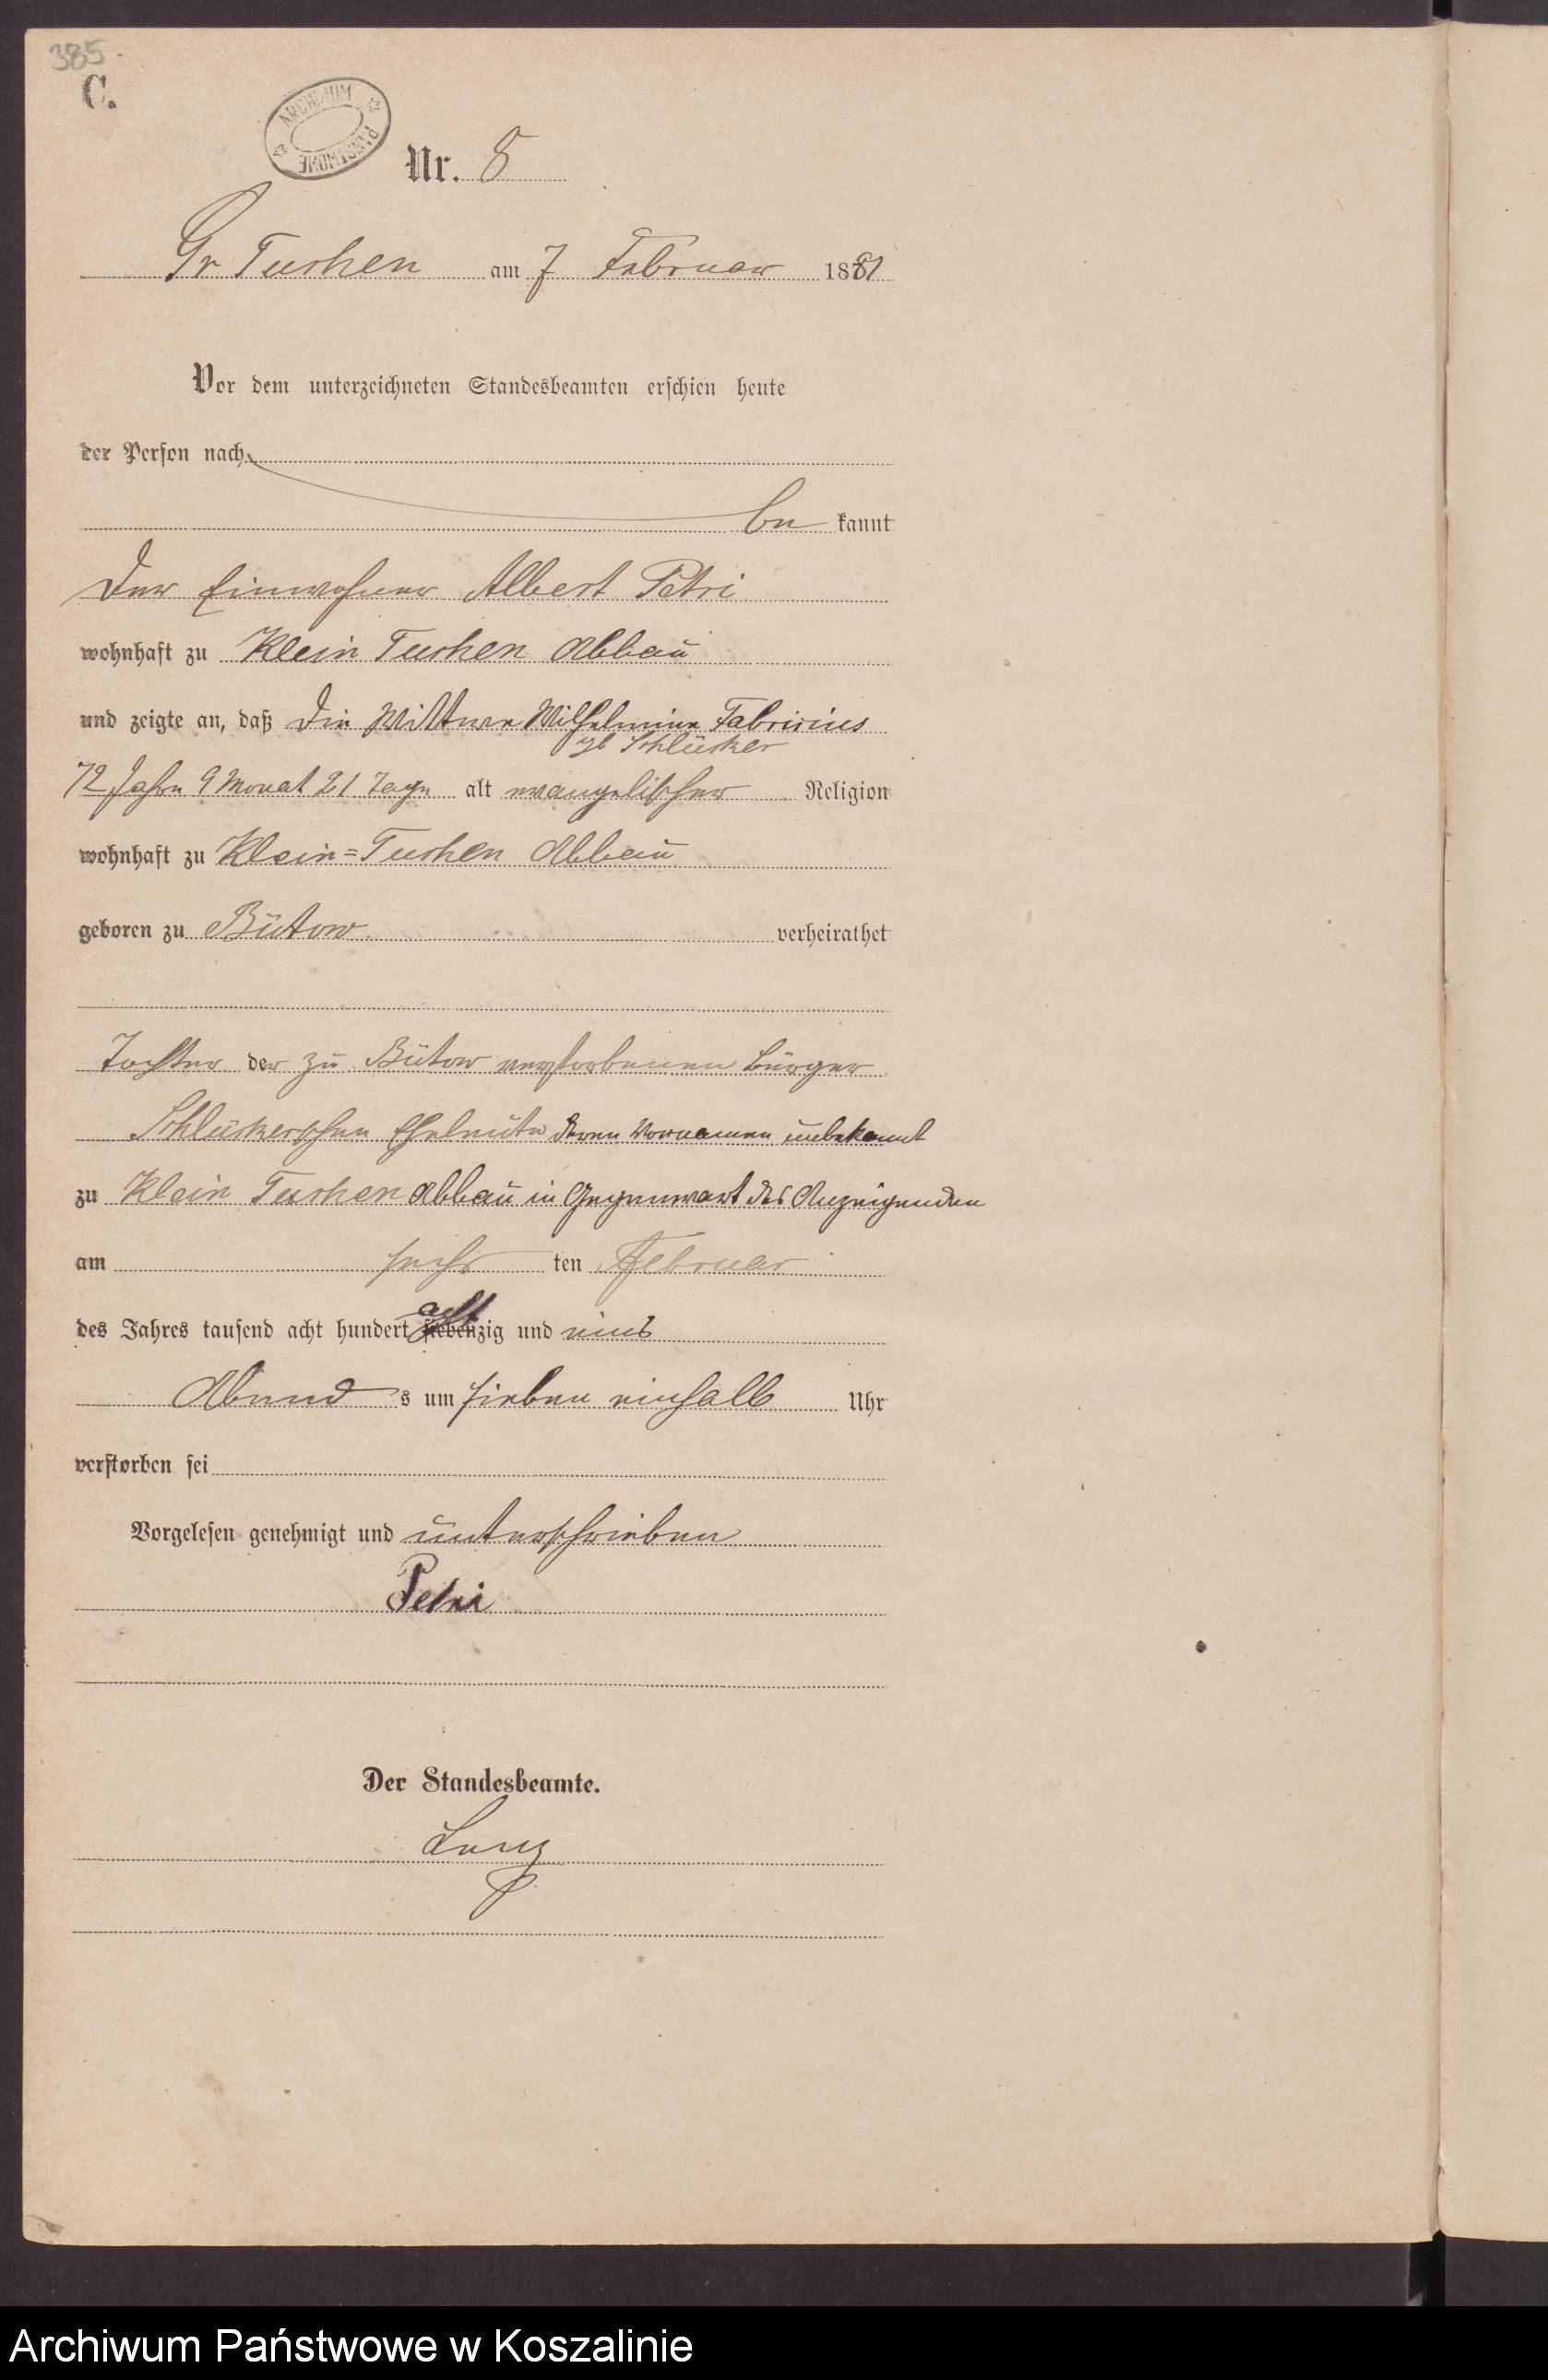 385.
C.
ARCHIWUM PAŃSTWOWE
Nr. 8
Gr Tuchen am 7 Februar 1881
Vor dem unterzeichneten Standesbeamten erschien heute
der Person nach
be kannt
Der Einwohner Albert Petri
wohnhaft zu Klein Tuchen Abbau
und zeigte an, daß Die Wittwe Wilhelmine Fabricius
gb Schlücker
72 Jahre 9 Monat 21 Tage alt evangelischer Religion
wohnhaft zu Klein=Tuchen Abbau
geboren zu Bütow verheirathet
Tochter der zu Bütow verstorbenen Bürger
Schlückerschen Eheleute deren Vornamen unbekannt
zu Klein Tuchen Abbau in Gegenwart des Anzeigenden
am sechs ten Februar
des Jahres tausend acht hundert siebenzig und eins
acht
Abend s um sieben einhalb Uhr
verstorben sei
Vorgelesen genehmigt und unterschrieben
Petri
Der Standesbeamte.
Archiwum Państwowe w Koszalinie